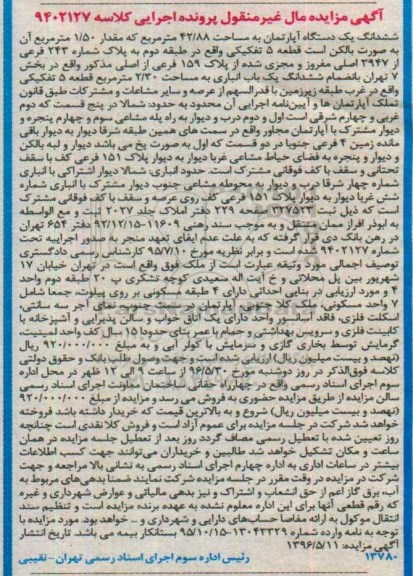 آگهی مزایده مال غیرمنقول پرونده اجرایی کلاسه ۹۴۰۲۱۲۷
ششدانگ یک دستگاه آپارتمان به مساحت ۴۲/۸۸ مترمربع که مقدار ۱/۵۰ مترمربع آن
به صورت بالکن است قطعه ۵ تفکیکی واقع در طبقه دوم به پلاک شماره ۲۴۳ فرعی
از ۳۹۴۷ اصلی مفروز و مجزی شده از پلاک ۱۵۹ فرعی از اصلی مذکور واقع در بخش
۷ تهران بانضمام ششدانگ یک باب انباری به مساحت ۲/۳۰ مترمربع قطعه ۵ تفکیکی
واقع در غرب طبقه زیرزمین با قدرالسهم از عرصه و سایر مشاعات و مشترکات طبق قانون
تملک آپارتمان ها و آیین‌نامه اجرایی آن محدود به حدود: شمالا در پنج قسمت که دوم
غربی و چهارم شرقی است اول و دوم درب و دیوار به راه پله مشاعی سوم و چهارم پنجره و
دیوار مشترک با آپارتمان مجاور واقع در سمت های همین طبقه شرقا دیوار به دیوار باقی
مانده زمین ۴ فرعی جنوبا در دو قسمت که اول به صورت پخ می باشد دیوار و لبه بالکن
و دیوار و پنجره به فضای حیاط مشاعی غربا دیوار به دیوار پلاک ۱۵۱ فرعی کف با سقف
تحتانی و سقف با کف فوقانی مشترک است. حدود انباری: شمالا دیوار اشتراکی با انباری
شماره چهار شرقا درب و دیوار به محوطه مشاعی جنوب دیوار مشترک با انباری شماره
شش غربا دیوار به دیوار پلاک ۱۵۱ فرعی کف روی عرصه و سقف با کف فوقانی مشترک
است که ذیل ثبت ۳۲۷۵۲۳ صفحه ۲۲۹ دفتر املاک جلد ۲۰۲۷ ثبت و مع الواسطه
به ابوذر افراز ممان منتقل و به موجب سند رهنی ۱۱۶۰۹-۹۲/۱۲/۱۵ دفتر ۶۵۴ تهران
در رهن بانک دی قرار گرفته که به علت عدم ایفای تعهد منجر به صدور اجراییه تحت
شماره ۹۴۰۲۱۲۷ شده است و برابر نظریه مورخ ۹۵/۷/۱۰ کارشناس رسمی دادگستری
توصیف اجمالی مورد وثیقه عبارت است از ملک فوق واقع است در تهران خیابان ۱۷
شهریور بین پل محلاتی و خ آیت اله سعیدی کوچه تشکری پ ۲۰ طبقه دوم واحد
۴ و مورد ارزیابی در بنایی احداثی دارای ۴ طبقه مسکونی بر روی پیلوت، جمعا شامل
۷ واحد مسکونی، ملک کلا جنوبی، آپارتمان در سمت جنوب نمای آجر سه سانتی،
اسکلت فلزی، فاقد آسانسور واحد دارای یک اتاق خواب و سالن پذیرایی و آشپزخانه با
کابینت فلزی و سرویس بهداشتی و حمام با عمر بنای حدودا ۱۵ سال کف واحد لمینیت،
گرمایش توسط بخاری گازی و سرمایش با کولر آبی و به مبلغ ۹۲۰/۰۰۰/۰۰۰ ریال
(نهصد و بیست میلیون ریال) ارزیابی شده است و جهت وصول طلب بانک و حقوق دولتی
کلاسه فوق‌الذکر در روز دوشنبه مورخ ۹۶/۵/۳۰ از ساعت ۹ الی ۱۲ ظهر در محل اداره
سوم اجرای اسناد رسمی واقع در چهارراه حقانی ساختمان معاونت اجرای اسناد رسمی
سالن مزایده از طریق مزایده حضوری به فروش می رسد و مزایده از مبلغ ۹۲۰/۰۰۰/۰۰۰
(نهصد و بیست میلیون ریال) شروع و به بالاترین قیمت که خریدار داشته باشد فروخته
خواهد شد شرکت در جلسه مزایده برای عموم آزاد است و فروش کلا نقدی است چنانچه
روز تعیین شده با تعطیل رسمی مصادف گردد روز بعد از تعطیل جلسه مزایده در همان
ساعت و مکان تشکیل خواهد شد طالبین و خریداران می‌توانند جهت کسب اطلاعات
بیشتر در ساعات اداری به اداره چهارم اجرای اسناد رسمی به نشانی بالا مراجعه و جهت
شرکت در مزایده در وقت مقرر در جلسه مزایده شرکت نمایند ضمنا بدهی‌های مربوط به
آب، برق گاز اعم از حق انشعاب و اشتراک و نیز بدهی مالیاتی و عوارض شهرداری و غیره
که رقم قطعی آنها برای این اداره معلوم نشده به عهده برنده مزایده است و تنظیم سند
انتقال موکول به ارائه مفاصا حساب‌های دارایی و شهرداری و ... خواهد بود. مورد مزایده با
توجه به نامه وارده شماره ۱۳۰۴۳۳۲۹-۹۵/۱۰/۱۵ بستانکار بیمه می باشد. تاریخ انتشار
آگهی مزایده: ۱۳۹۶/۵/۱۱
۱۳۷۸۰ رئیس اداره سوم اجرای اسناد رسمی تهران - نقیبی